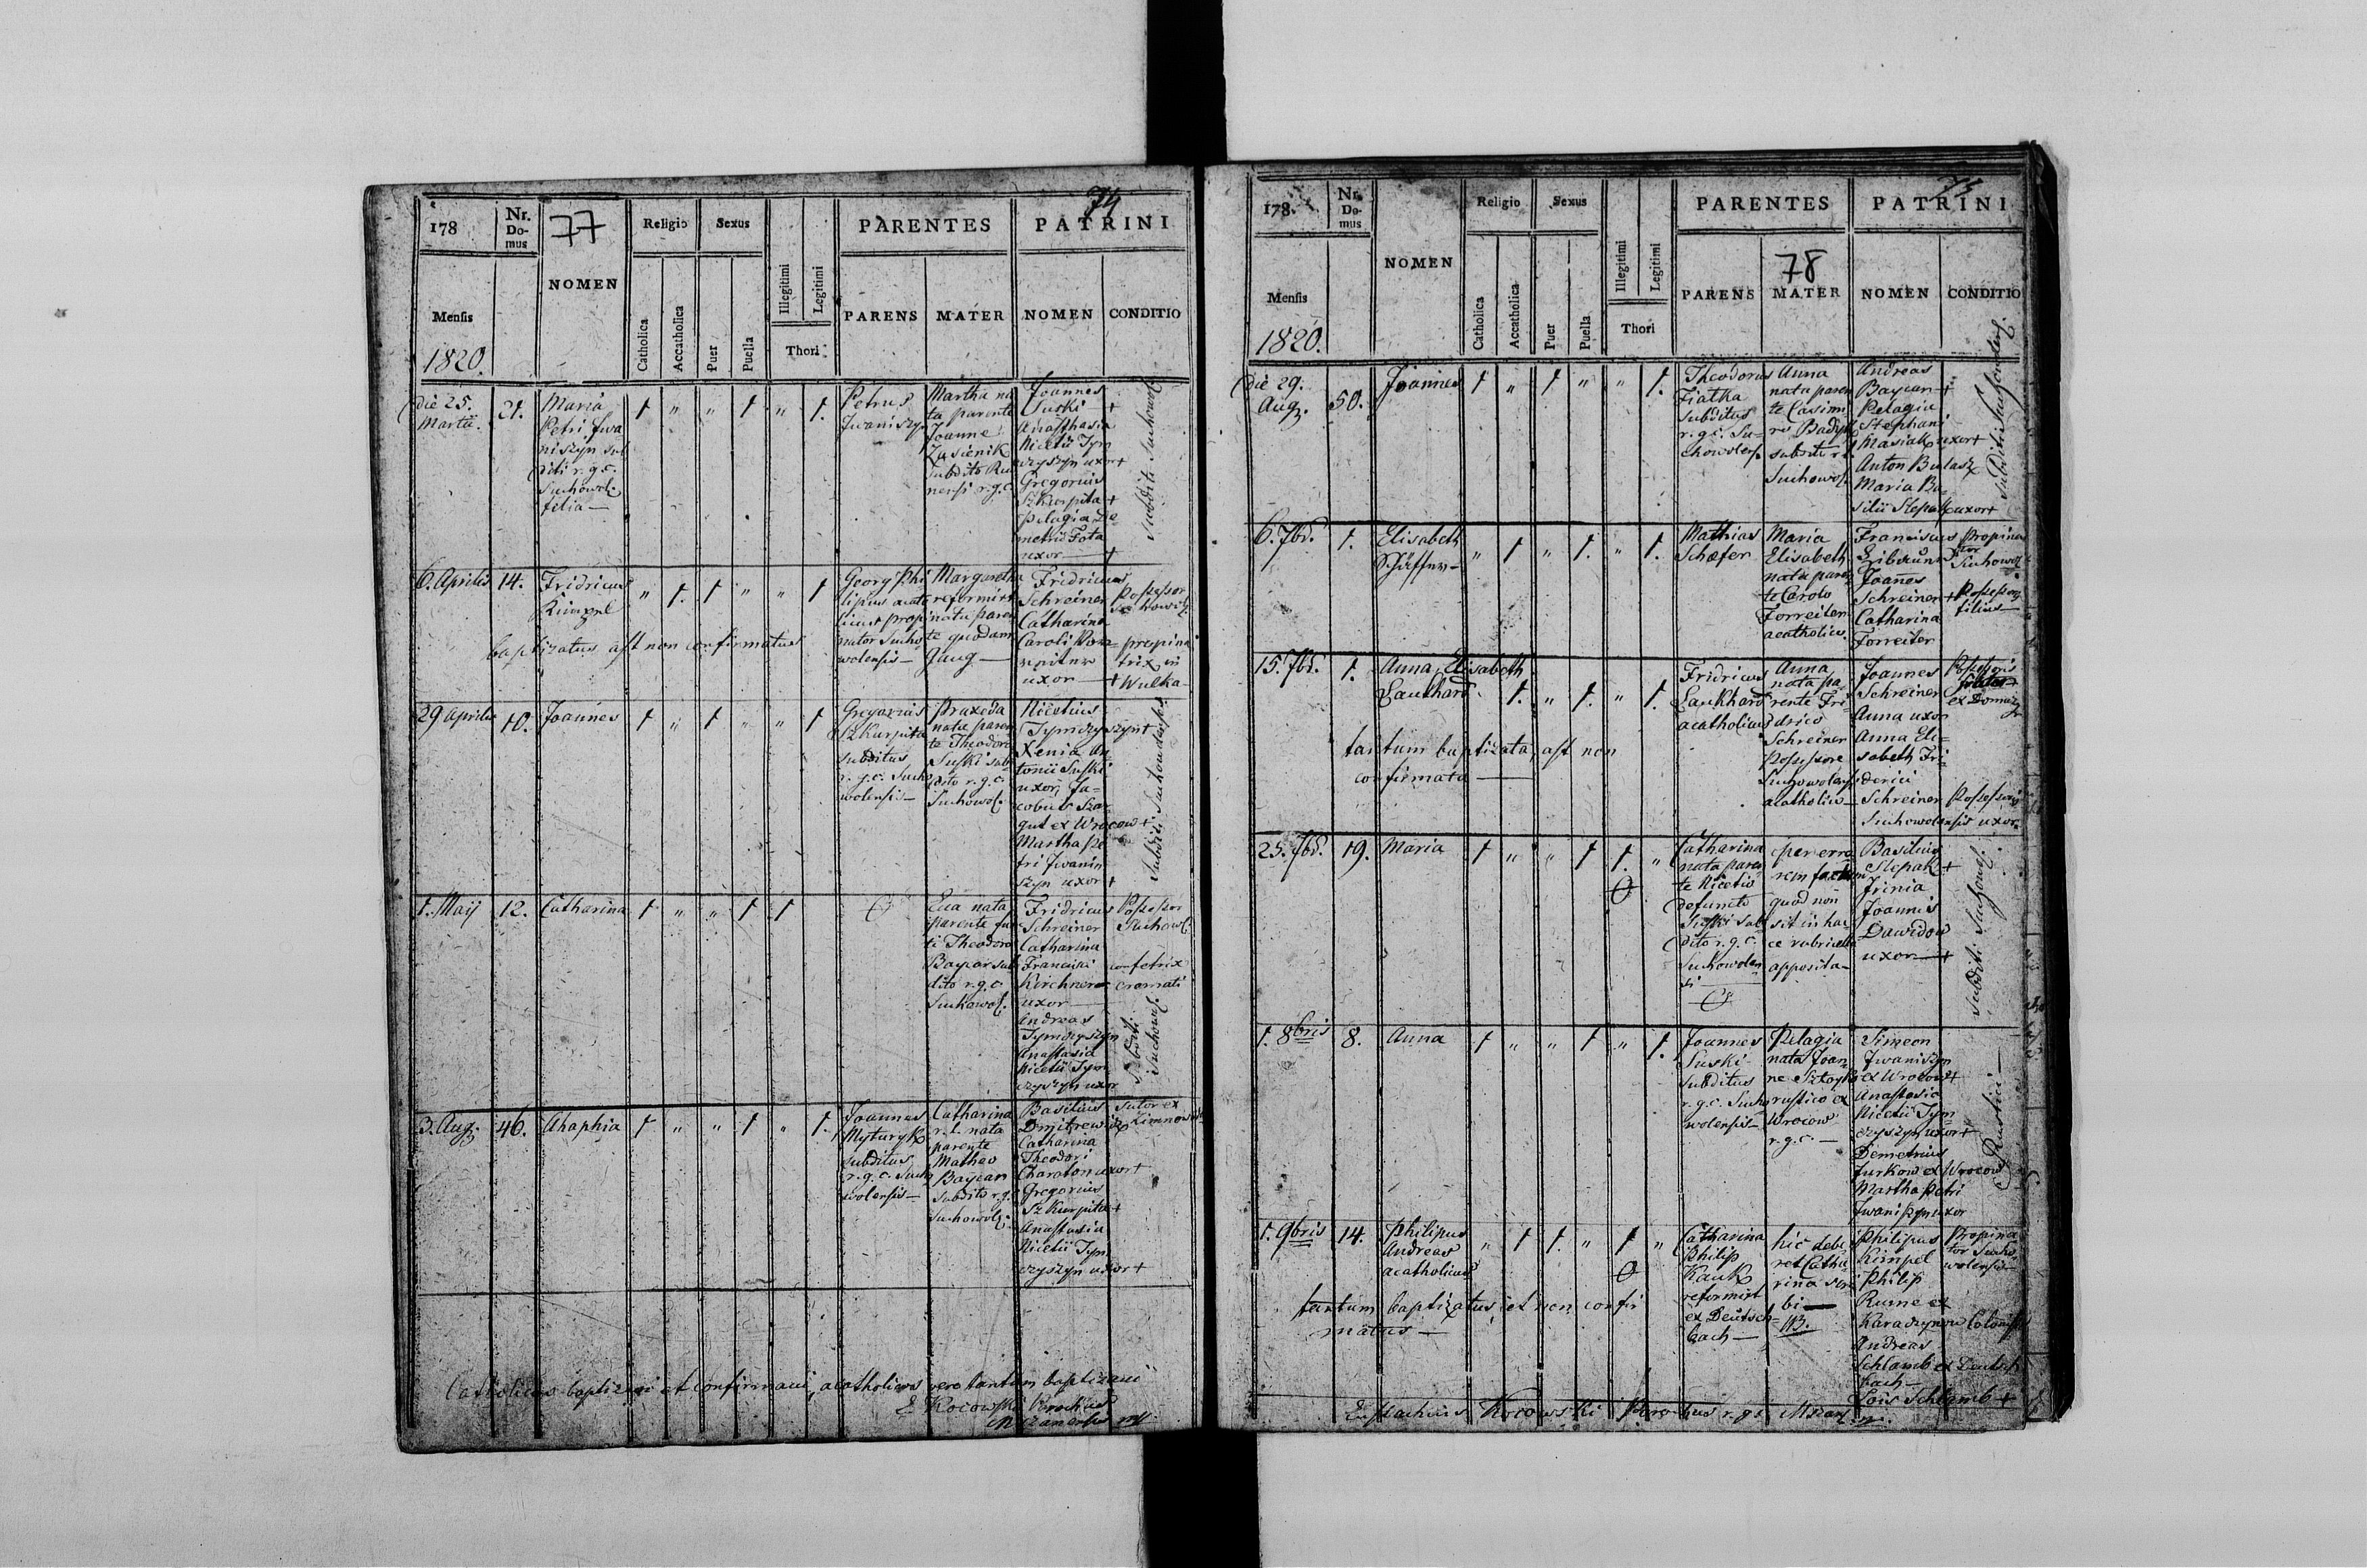 74
178
Nr. Domus
77
NOMEN
Religio
Sexus
PARENTES
PATRINI
Mensis
1820.
Catholica
Accatholica
Puer
Puella
Illegitimi
Legitimi
Thori
PARENS
MATER
NOMEN
CONDITIO
die 25. Martii.
21.
Maria
Petri Iwa
niszyn sub
diti r. g. c.
Suchowol.
filia
1 " " 1 " 1.
Petrus
Iwaniszyn
Martha na
ta parente
Joanne
subdito
nensi r.g.c.
Joannes
Suski +
Anasthasia
Nicetii Tym
czyszyn uxor +
Gregorius
Szkurpita +
Pelagia De
metrii Fota
uxor +
subditi Suchowol.
6. Aprilis
14.
Fridricus
Kimpel
" 1. 1 " " 1
baptizatus ast non confirmatus
Georg Phi
lipus acato
licus propi
nator Sucho
wolensis
Margaretha
reformirt
nata paren
te quodam
Gaug
Fridricus
Schreiner
Catharina
Caroli
uxor +
possessor
propina
trix in
Wulka
29 Aprilis
10.
Joannes
1 " 1 " " 1
Gregorius
Szkurpita
subditus
r. g. c. Sucho
wolensis
Praxeda
nata paren
te Theodoro
Suski sub
dito r.g.c.
Suchowol.
Nicetius
Tymczyszyn +
Xenia An
tonii Suski
uxor, Ja
cobus Szar
gut ex Wrocow +
Martha Pe
tri Iwani
szyn uxor +
1. Maij
12.
Catharina
1 " " 1 1
Eva nata
parente
Theodoro
Baycar sub
dito r.g.c.
Suchowol.
Fridricus
Schreiner
Catharina
Francisci
Kirchner
uxor
Andreas
Tymczyszyn
Anastasia
Nicetii Tym
czyszyn uxor
Possessor
Suchowol.
cremati
subditi
Suchowol.
3. Aug.
46.
Ahaphia
1 " " 1 " 1.
Joannes
Myturyk
subditus
r. g. c. Sucho
wolensis
Catharina
r.l. nata
parente
Matheo
Baycar
subdito r.g.
Suchowol.
Basilius
Dmitrewicz
Catharina
Theodori
Charaton uxor +
Gregorius
Szkurpita +
Anastasia
Nicetii Tym
czyszyn uxor +
sutor ex
Zimnowoda
Catholicos baptizavi et confirmavi, acatholicos vero tantum baptizavi
E Kocowski Parochus
75
178.
Nr. Domus
NOMEN
Religio
Sexus
PARENTES
PATRINI
78
Mensis
1820.
Catholica
Accatholica
Puer
Puella
Illegitimi
Legitimi
Thori
PARENS
MATER
NOMEN
CONDITIO
die 29.
Aug.
50.
Joannes
1 " 1 " " 1.
Theodorus
Fiatka
subditus
r. g. c. Su=
chowolens.
Anna
nata paren
te Casimi
ro Badyk
subdito r.
Suchowol.
Andreas
Baycar +
Pelagia
Stephani
Masiak uxor +
Anton Butasz
Maria Ba
silii Slepak uxor +
6. 7bris.
1.
Elisabeth
Schäffer
" 1 " 1. " 1.
Mathias
Schaefer
Maria
Elisabeth
nata paren
te Carolo
Forreiter
acatholica.
Franciscus
Joannes
Schreiner +
Catharina
Forreiter
Propina
tor
Suchowol.
Possessoris
filius
15. 7bris.
1.
Anna Elisabeth
Laukhard
1. " 1. " 1.
tantum baptizata, ast non
confirmata
Fridricus
Laukhard
acatholicus
Anna
nata pa
rente Fri
drico
Schreiner
Possessore
Suchowolensi
acatholica
Joannes
Schreiner
Anna uxor
Anna Eli=
sabeth Fri
derici
Schreiner Possessoris
Suchowolensis uxor.
Possessoris
25. 7bris.
19.
Maria
1 " " 1 1. "
Catharina
nata paren
te Nicetio
defuncto
Suski sub
dito r. g. c.
Suchowolen
si
per erro
rem factum
quod non
sit in hac
ce rubricella
apposita
Basilius
Slepak +
Irinia
Joannis
Dawidow
uxor +
subditi Suchowol.
1. 8bris
8.
Anna
1 " " 1 " 1.
Joannes
Suski
subditus
r. g. c. Sucho
wolensis
Pelagia
nata Joan
ne Sztoyko
rustico ex
Wrocow
r. g. c.
Simeon
Iwaniszyn
ex Wrocow +
Anastasia
Nicetii Tym
czyszyn uxor +
Demetrius
Jurkow ex Wrocow
Martha Petri
Iwaniszyn uxor
Rustici
1. 9bris
14.
Philipus
Andreas
acatholicus
" 1 1. " 1 "
tantum baptizatus, et non confir
matus
Catharina
Philip
Kauk
reformirt
ex Deutsch=
bach
hic debe
ret Catha
rina scri
bi
NB.
Philipus
Kimpel
Philip
Rume ex
Karaczynow Colonist
Andreas
Schlamb ex Deutsch
bach
Lois Schlamb +
Propina
tor Sucho
wolensis
Eustachius Kocowski Parochus r. g. c.